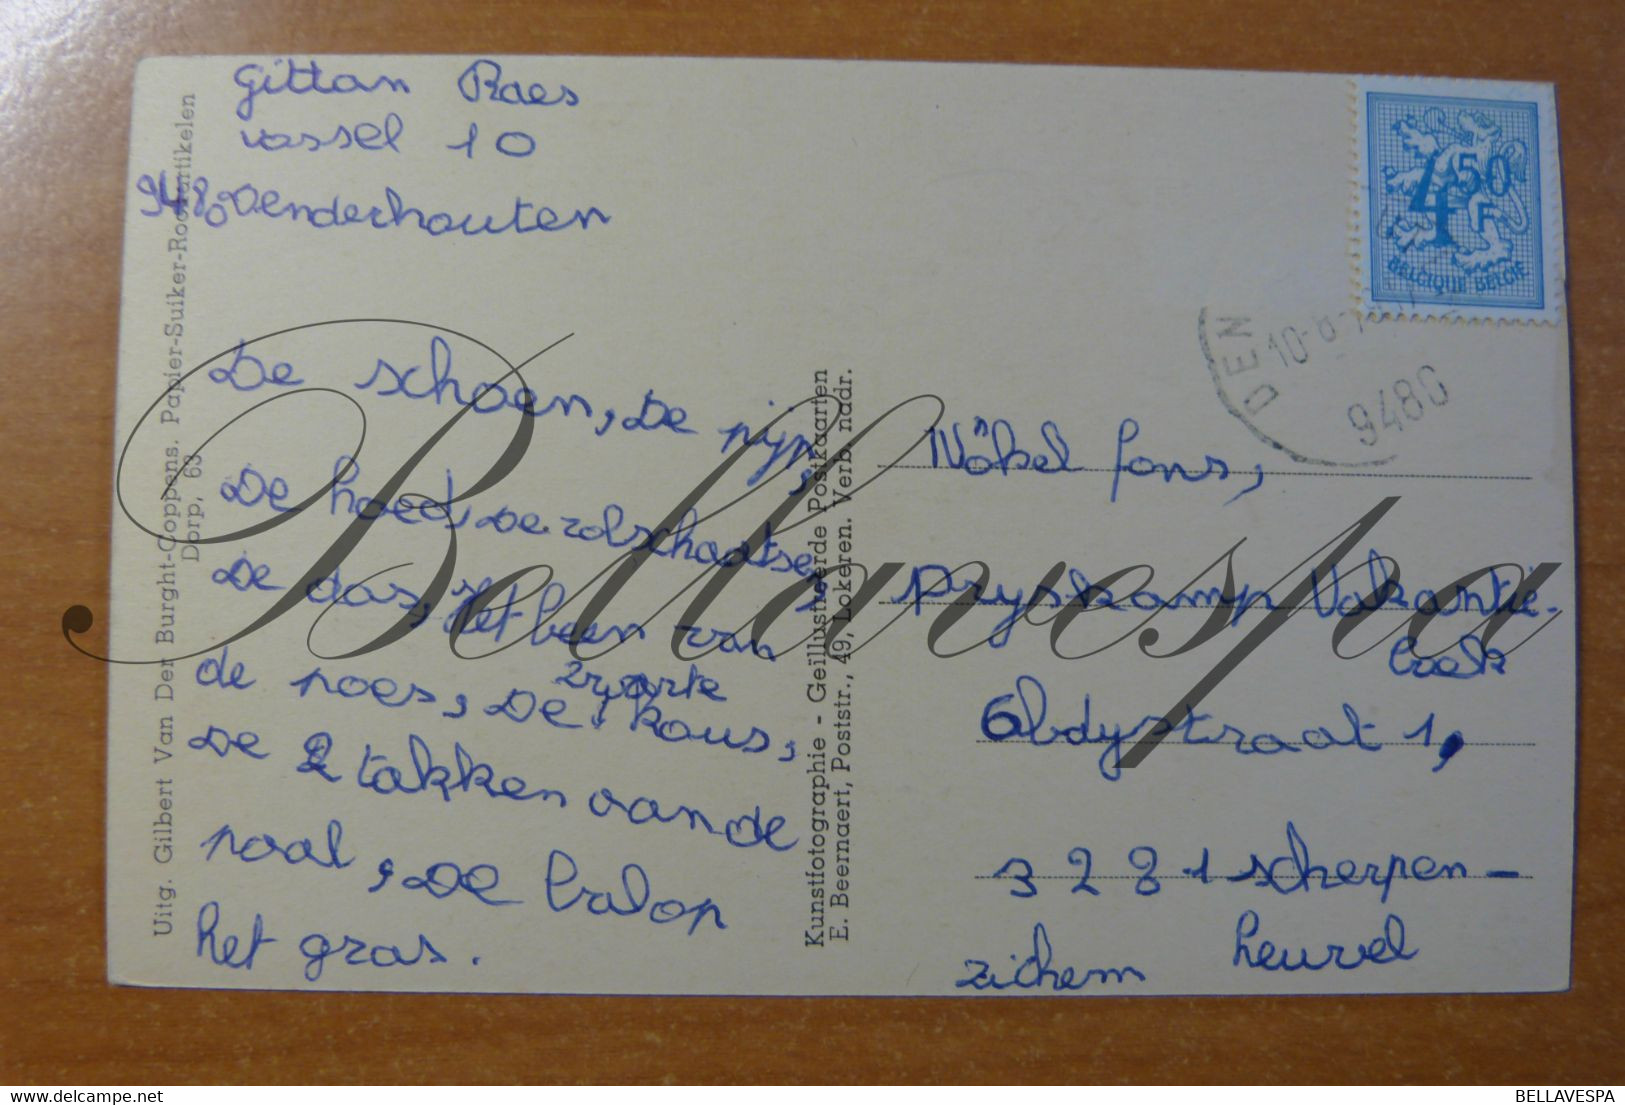 Gittan Raes
vossel 10
9480 Denderhouten
De schoen, De pijp,
De hoed, De rolschaatsen,
De das, Het been van
de poes, De zwarte kous,
De 2 takken van de
paal, De bal op
het gras.
Uitg. Gilbert Van Der Burght-Coppens. Papier-Suiker-Rookartikelen
Dorp, 63
Kunstfotographie - Geïllustreerde Postkaarten
E. Beernaert, Poststr., 49, Lokeren. Verb. nadr.
4,50
F
BELGIQUE BELGIË
DEN
9480
Nökel fons,
Pryskamp Vakantie-
boek
Abdystraat 1,
3281 scherpen-
heuvel
zichem
Bellavespa
delcampe.net
BELLAVESPA